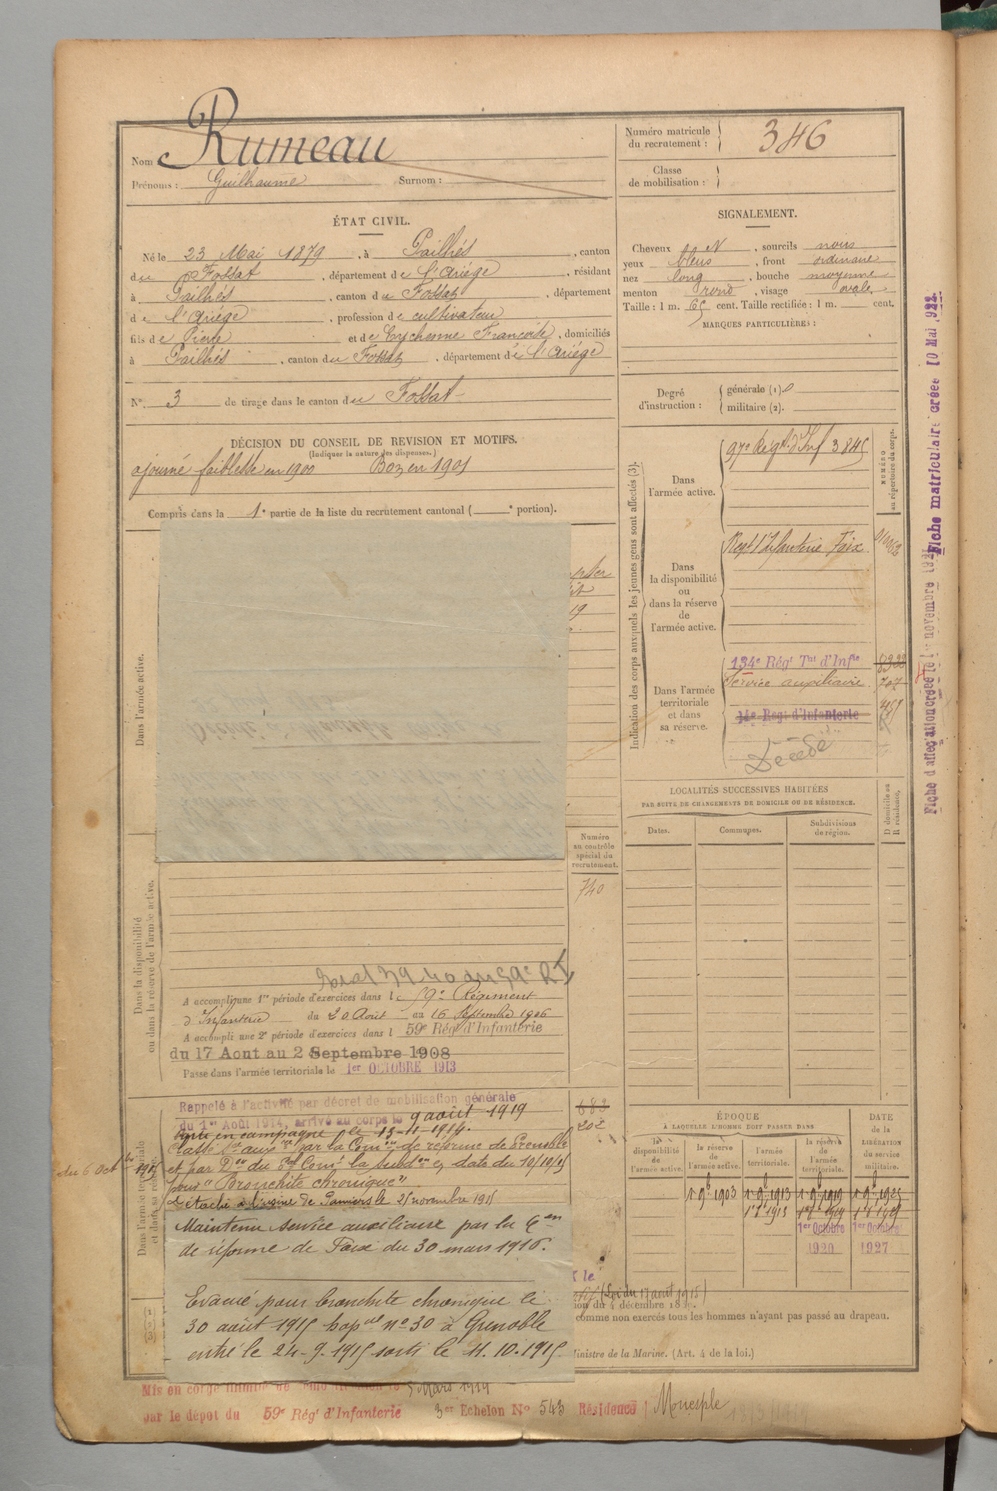 Nom Rumeau
Prénoms : Guilhaume Surnom :
Numéro matricule du recrutement : 346
Classe de mobilisation :
ÉTAT CIVIL.
Né le 23 Mai 1879, à Pailhés, canton
du Fossat, département de l'Ariège, résidant
à Pailhés, canton du Fossat, département
de l'Ariège, profession de cultivateur
fils de Pierre et de Eychenne Françoise, domiciliés
à Pailhés, canton du Fossat, département de l'Ariége
N° 3 de tirage dans le canton du Fossat
DÉCISION DU CONSEIL DE REVISION ET MOTIFS.
(Indiquer la nature des dispenses.)
ajourné faiblesse en 1900 Bon en 1901
Compris dans la 1e partie de la liste du recrutement cantonal ( e portion).
SIGNALEMENT.
Cheveux N, sourcils noirs
yeux bleus, front ordinaire
nez long, bouche moyenne
menton rond, visage ovale
Taille : 1 m. 65 cent. Taille rectifiée : 1 m. cent.
MARQUES PARTICULIÈRES :
Degré d'instruction : générale (1)
militaire (2).
Indication des corps auxquels les jeunes gens sont affectés (3).
NUMÉRO au répertoire du corps.
Dans l'armée active.
97e Régt d'Inf 3845
Dans la disponibilité ou dans la réserve de l'armée active.
Regt d'Infanterie Foix
Dans l'armée territoriale et dans sa réserve.
134e Régt Tal d'Infie
Service auxiliaire 707
Régt d'Infanterie
Décédé
Fiche matriculaire créée 10 Mai 1922.
Fiche d'affectation créée le 1er novembre
LOCALITÉS SUCCESSIVES HABITÉES
PAR SUITE DE CHANGEMENTS DE DOMICILE OU DE RÉSIDENCE.
Dates. Communes. Subdivisions de région. D domicile ou R résidence.
Dans l'armée active.
Numéro au contrôle spécial du recrutement.
740
Dans la disponibilité ou dans la réserve de l'armée active.
A accompli une 1re période d'exercices dans le 59e Régiment
d'Infanterie du 20 Août au 16 Septembre 1906
A accompli une 2e période d'exercices dans l 59e Rég d'Infanterie
du 17 Aout au 2 Septembre 1908
Passé dans l'armée territoriale le 1er OCTOBRE 1913
Rappelé à l'activité par décret de mobilisation générale
du 1er Août 1914, arrivé au corps le 9 août 1919
Parti en campagne le 13-11-1914.
Classé Sce auxre par la Comon de réforme de Grenoble
du 6 Octbre 1915
pour "Bronchite chronique"
Détaché à l'usine de Pamiers le 25 novembre 1915
Maintenu service auxiliaire par la Con
de réforme de Foix du 30 mars 1916.
Evacué pour bronchite chronique le
30 août 1915 hopal n° 30 à Grenoble
entré le 24-9-1915 sorti le 11.10.1915
Dans l'armée territoriale et dans sa réserve.
682
202
ÉPOQUE
À LAQUELLE L'HOMME DOIT PASSER DANS
DATE DE LA LIBÉRATION DU SERVICE militaire.
la disponibilité de l'armée active. la réserve de l'armée active. l'armée territoriale. la réserve de l'armée territoriale.
1 9b 1903 1 9b 1913 1 9b 1919 1 9b 1925
1er Octobre 1920 1er Octobre 1927
(Loi du 17 août 1915)
comme non exercés tous les hommes n'ayant pas passé au drapeau.
Ministre de la Marine. (Art. 4 de la loi.)
Mis en congé illimité de démobilisation le 5 Mars 1919
par le dépot du 59e Régt d'Infanterie 3er Echelon N° 543 Résidence Monesple